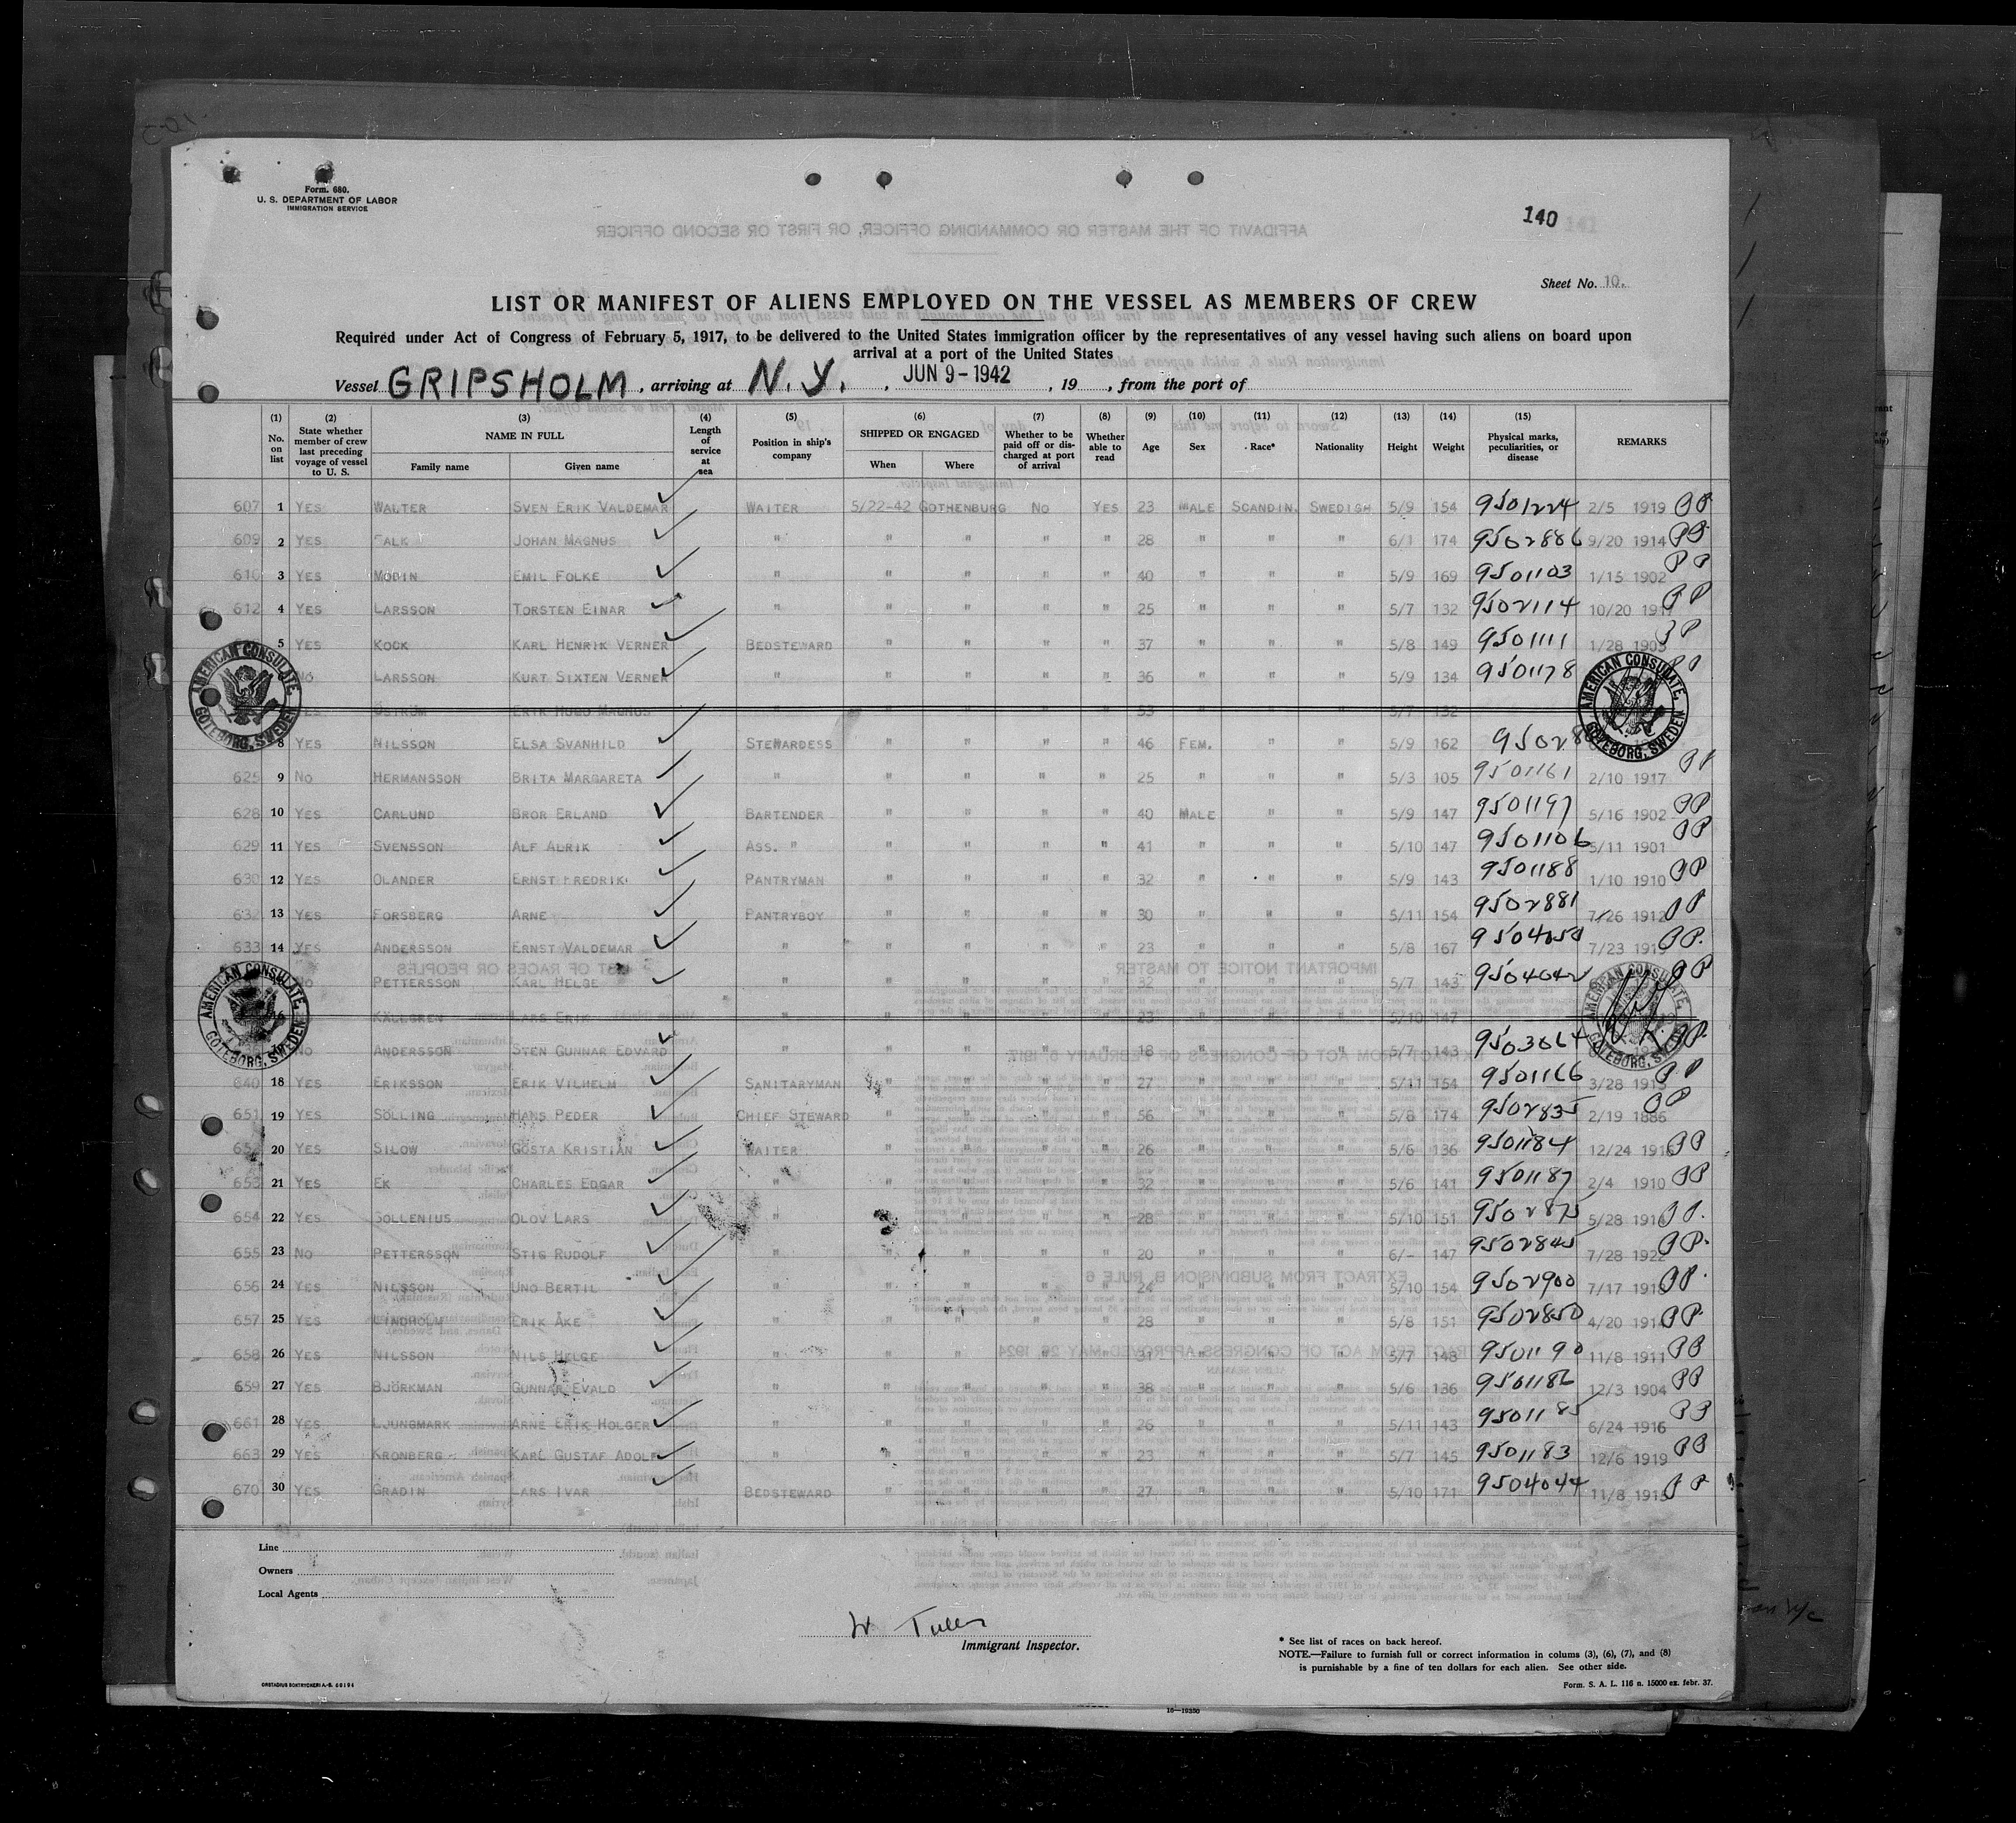 Form. 680.
U. S. DEPARTMENT OF LABOR
IMMIGRATION SERVICE
140
Sheet No. 10.
LIST OR MANIFEST OF ALIENS EMPLOYED ON THE VESSEL AS MEMBERS OF CREW
Required under Act of Congress of February 5, 1917, to be delivered to the United States immigration officer by the representatives of any vessel having such aliens on board upon
arrival at a port of the United States
Vessel GRIPSHOLM, arriving at N. Y., JUN 9-1942, 19 , from the port of
(1) No. on list (2) State whether member of crew last preceding voyage of vessel to U. S. (3) NAME IN FULL Family name Given name (4) Length of service at sea (5) Position in ship's company (6) SHIPPED OR ENGAGED When Where (7) Whether to be paid off or discharged at port of arrival (8) Whether able to read (9) Age (10) Sex (11) Race* (12) Nationality (13) Height (14) Weight (15) Physical marks, peculiarities, or disease REMARKS
607 1 YES WALTER SVEN ERIK VALDEMAR WAITER 5/22-42 GOTHENBURG NO YES 23 MALE SCANDIN. SWEDISH 5/9 154 9501224 2/5 1919
609 2 YES FALK JOHAN MAGNUS " " " " " 28 " " " 6/1 174 9502886 9/20 1914
610 3 YES MODIN EMIL FOLKE " " " " " 40 " " " 5/9 169 9501103 1/15 1902
612 4 YES LARSSON TORSTEN EINAR " " " " " 25 " " " 5/7 132 9502114 10/20 1917
5 YES KOCK KARL HENRIK VERNER BEDSTEWARD " " " " 37 " " " 5/8 149 9501111 1/28 1905
NO LARSSON KURT SIXTEN VERNER " " " " " 36 " " " 5/9 134 9501178
ÖSTRÖM ERIK HUGO MAGNUS " " " " " 53 " " " 5/7 132
8 YES NILSSON ELSA SVANHILD STEWARDESS " " " " 46 FEM. " " 5/9 162 95028
625 9 NO HERMANSSON BRITA MARGARETA " " " " " 25 " " " 5/3 105 9501161 2/10 1917
628 10 YES CARLUND BROR ERLAND BARTENDER " " " " 40 MALE " " 5/9 147 9501197 5/16 1902
629 11 YES SVENSSON ALF ALRIK ASS. " " " " " 41 " " " 5/10 147 9501106 5/11 1901
630 12 YES OLANDER ERNST FREDRIK PANTRYMAN " " " " 32 " " " 5/9 143 9501188 1/10 1910
632 13 YES FORSBERG ARNE PANTRYBOY " " " " 30 " " " 5/11 154 9502881 7/26 1912
633 14 YES ANDERSSON ERNST VALDEMAR " " " " " 23 " " " 5/8 167 9504050 7/23 1919
NO PETTERSSON KARL HELGE " " " " " 32 " " " 5/7 143 9504042
KÄLLGREN LARS ERIK " " " " " 23 " " " 5/10 147
NO ANDERSSON STEN GUNNAR EDVARD " " " " " 18 " " " 5/7 143 9503064
640 18 YES ERIKSSON ERIK VILHELM SANITARYMAN " " " " 27 " " " 5/11 154 9501166 3/28 1915
651 19 YES SÖLLING HANS PEDER CHIEF STEWARD " " " " 56 " " " 5/8 174 9502835 2/19 1886
652 20 YES SILOW GÖSTA KRISTIAN WAITER " " " " 26 " " " 5/6 136 9501184 12/24 1916
653 21 YES EK CHARLES EDGAR " " " " " 32 " " " 5/6 141 9501187 2/4 1910
654 22 YES SOLLENIUS OLOV LARS " " " " " 28 " " " 5/10 151 9502875 5/28 1914
655 23 NO PETTERSSON STIG RUDOLF " " " " " 20 " " " 6/- 147 9502845 7/28 1922
656 24 YES NILSSON UNO BERTIL " " " " " 24 " " " 5/10 154 9502900 7/17 1918
657 25 YES LINDHOLM ERIK ÅKE " " " " " 28 " " " 5/8 151 9502850 4/20 1914
658 26 YES NILSSON NILS HELGE " " " " " 31 " " " 5/7 148 9501190 11/8 1911
659 27 YES BJÖRKMAN GUNNAR EVALD " " " " " 38 " " " 5/6 136 9501186 12/3 1904
661 28 YES LJUNGMARK ARNE ERIK HOLGER " " " " " 26 " " " 5/11 143 9501185 6/24 1916
663 29 YES KRONBERG KARL GUSTAF ADOLF " " " " " 23 " " " 5/7 145 9501183 12/6 1919
670 30 YES GRADIN LARS IVAR BEDSTEWARD " " " " 27 " " " 5/10 171 9504044 11/8 1915
AMERICAN CONSULATE, GOTEBORG, SWEDEN
AMERICAN CONSULATE, GOTEBORG, SWEDEN
AMERICAN CONSULATE, GOTEBORG, SWEDEN
AMERICAN CONSULATE, GOTEBORG, SWEDEN
Line
Owners
Local Agents
Immigrant Inspector.
* See list of races on back hereof.
NOTE.—Failure to furnish full or correct information in colums (3), (6), (7), and (8)
is punishable by a fine of ten dollars for each alien. See other side.
Form. S. A. L. 116 n. 15000 ex. febr. 37.